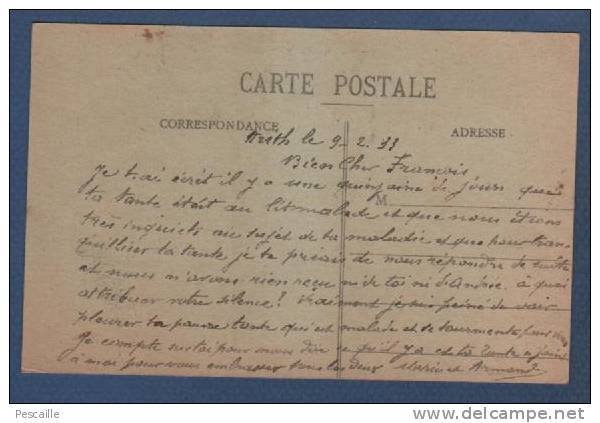 CARTE POSTALE
CORRESPONDANCE
ADRESSE
le 9-2.33
Bien Cher François
Je t'ai écrit il y a une quinzaine de jours que
M
ta tante était au lit malade et que nous étions
très inquiets au sujet de ta maladie et que pour tran
quilliser ta tante je te priais de nous répondre de suite
et nous n'avons rien reçu ni de toi ni d'Andrée. à quoi
attribuer votre silence! Vraiment je suis peiné de voir
pleurer ta pauvre tante qui est malade et se tourmente
Je compte sur toi pour nous dire ce qu'il y a et ta tante se joint
à moi pour vous embrasser tous les deux Armand
Pescaille
www.delcampe.net